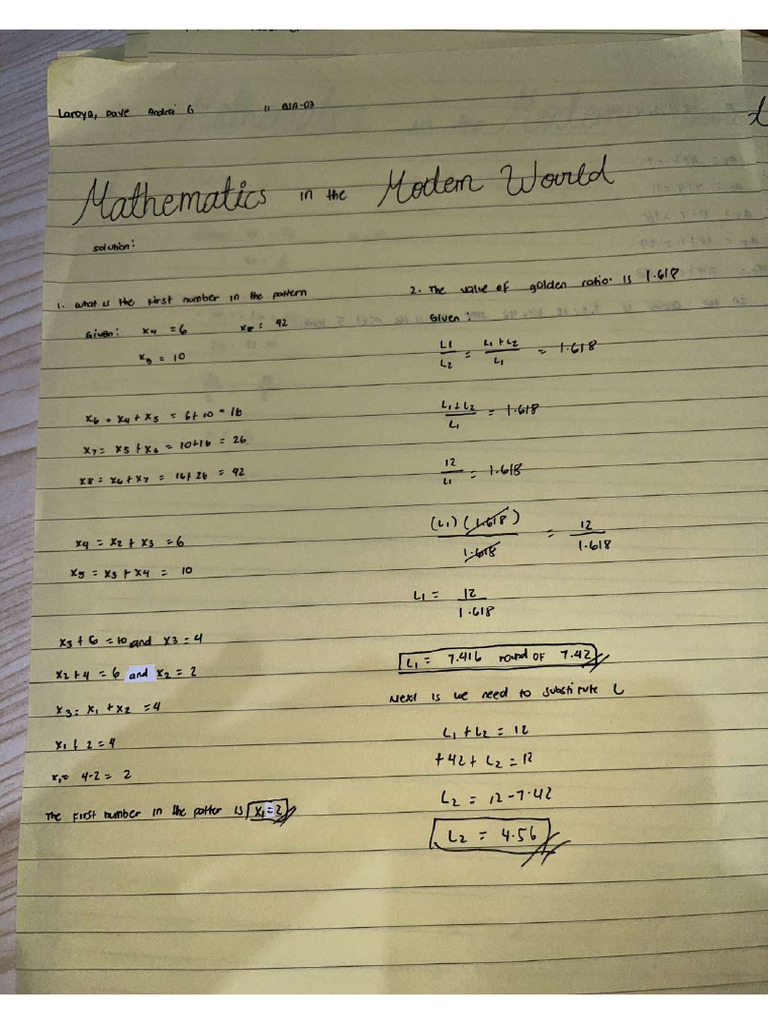 Laroya, Dave Andrei G 11 BSA-03
Mathematics in the Modern Wourld
solution:
1. what is the first number in the pattern
Given: x4 = 6 x8 = 42
x5 = 10
x6 = x4 + x5 = 6+10 = 16
x7 = x5 + x6 = 10+16 = 26
x8 = x6 + x7 = 16+26 = 42
x4 = x2 + x3 = 6
x5 = x3 + x4 = 10
x3 + 6 = 10 and x3 = 4
x2 + 4 = 6 and x2 = 2
x3 = x1 + x2 = 4
x1 + 2 = 4
x1 = 4-2 = 2
The first number in the patter is x1 = 2
2. The value of golden ratio is 1.618
Given:
L1/L2 = L1+L2/L1 = 1.618
L1+L2/L1 = 1.618
12/L1 = 1.618
(L1)(1.618)/1.618 = 12/1.618
L1 = 12/1.618
L1 = 7.416 round of 7.42
Next is we need to substitute L
L1 + L2 = 12
+42 + L2 = 12
L2 = 12-7.42
L2 = 4.56